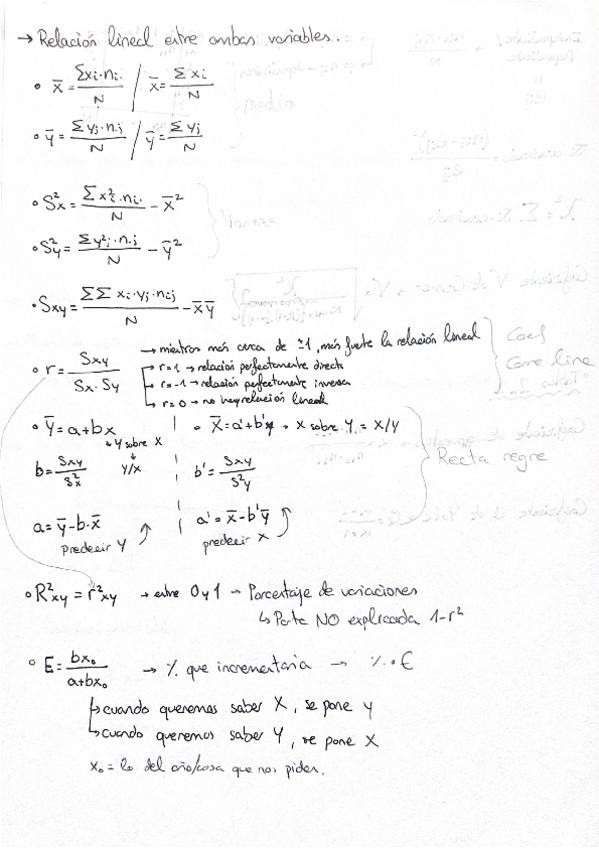 → Relación lineal entre ambas variables.
• x̄ = Σxi·ni. / N / x̄ = Σxi / N
• ȳ = Σyj·n.j / N / ȳ = Σyj / N
• S²x = Σx²i·ni. / N − x̄²
• S²y = Σy²j·n.j / N − ȳ²
• Sxy = ΣΣ xi·yj·nij / N − x̄ȳ
• r = Sxy / Sx·Sy → mientras más cerca de ±1, más fuerte la relación lineal
r=1 → relación perfectamente directa
r=-1 → relación perfectamente inversa
r=0 → no hay relación lineal
Coef
Corre line
• Y = a+bx • X = a'+b'y → X sobre Y = X/Y
↳ Y sobre X
Y/X
b = Sxy / S²x b' = Sxy / S²y
Recta regre
a = ȳ−b·x̄ a' = x̄−b'ȳ
predecir Y predecir X
• R²xy = r²xy → entre 0 y 1 → Porcentaje de variaciones
↳ Parte NO explicada 1−r²
• E = bx₀ / a+bx₀ → % que incrementaria → %·E
↳ cuando queremos saber X, se pone Y
↳ cuando queremos saber Y, se pone X
x₀ = lo del año/cosa que nos piden.